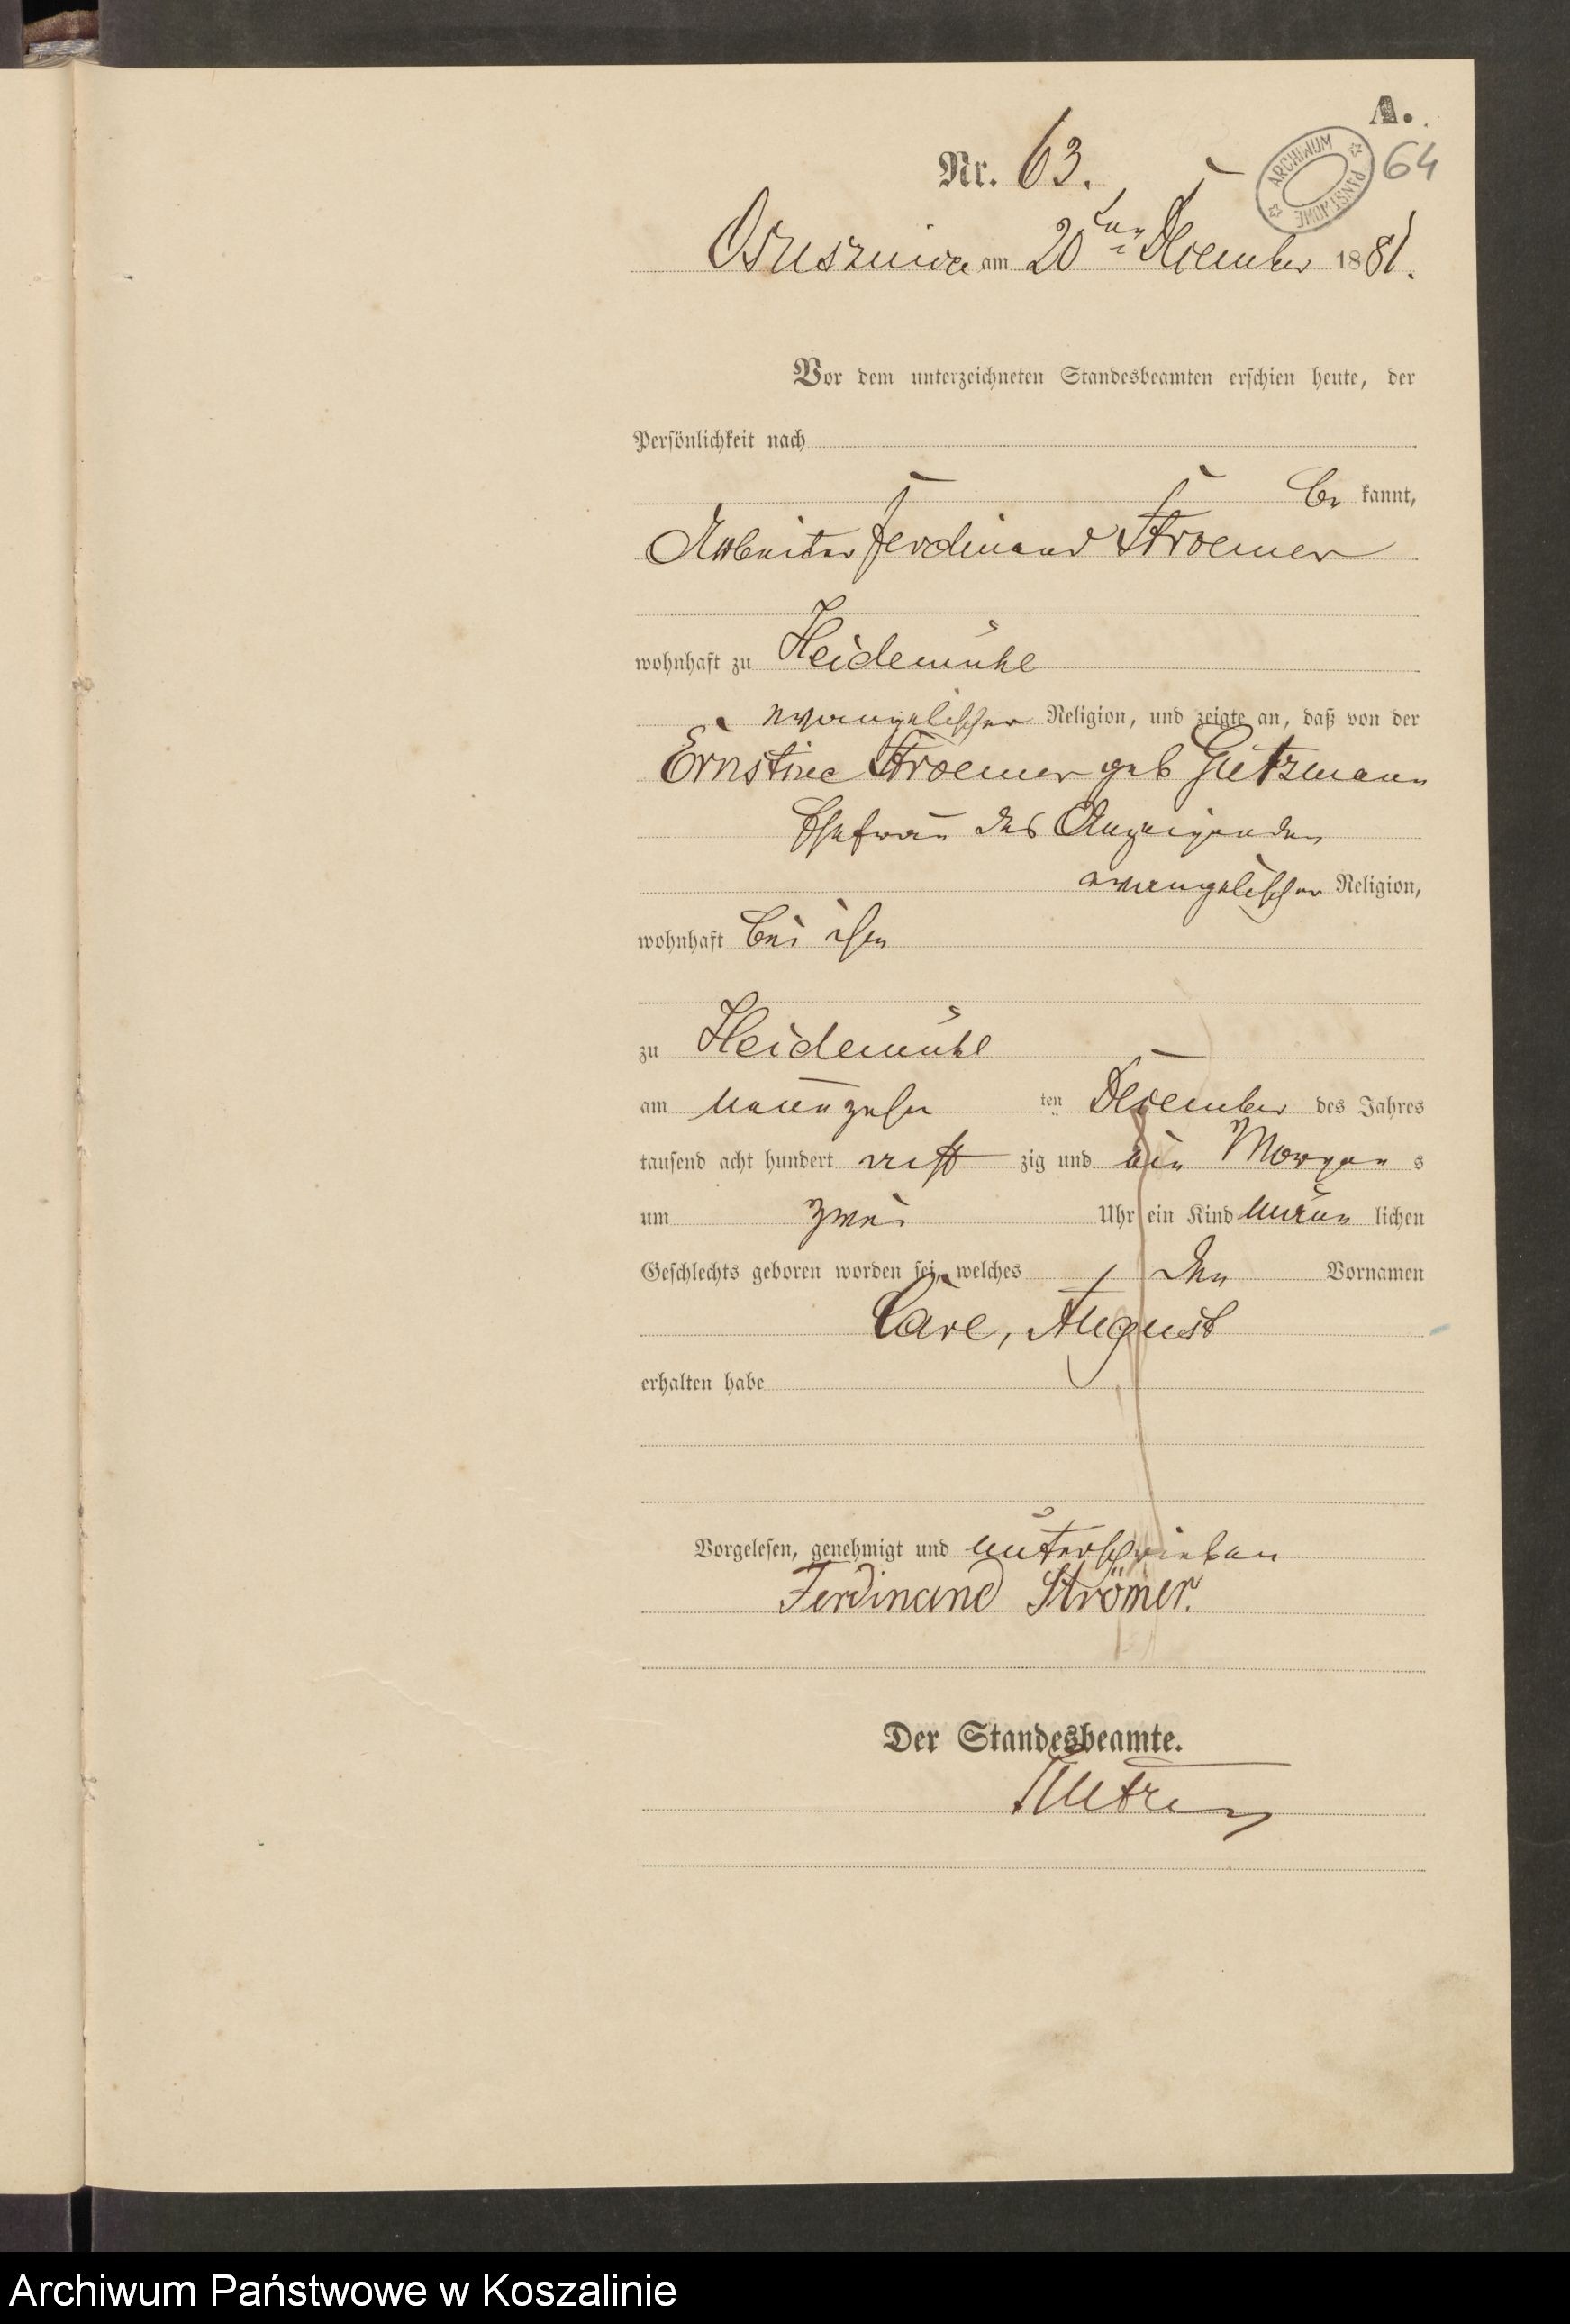 A.
ARCHIWUM PAŃSTWOWE
64
Nr. 63.
Osusznica am 20ten Dezember 1881.
Vor dem unterzeichneten Standesbeamten erschien heute, der
Persönlichkeit nach
be kannt,
Arbeiter Ferdinand Stroemer
wohnhaft zu Heidemühl
evangelischer Religion, und zeigte an, daß von der
Ernstine Stroemer geb Gutzmann
Ehefrau des Anzeigenden
evangelischer Religion,
wohnhaft bei ihm
zu Heidemühl
am neunzehn ten Dezember des Jahres
tausend acht hundert acht zig und ein Morgen s
um zwei Uhr ein Kind männ lichen
Geschlechts geboren worden sei, welches den Vornamen
Carl, August
erhalten habe
Vorgelesen, genehmigt und unterschrieben
Ferdinand Strömer.
Der Standesbeamte.
Archiwum Państwowe w Koszalinie